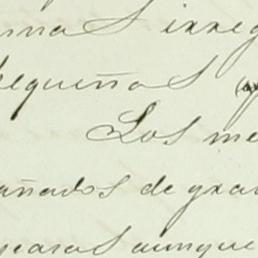 mas irreg
pequeñas (
Los me
añados de gra
paras aunque